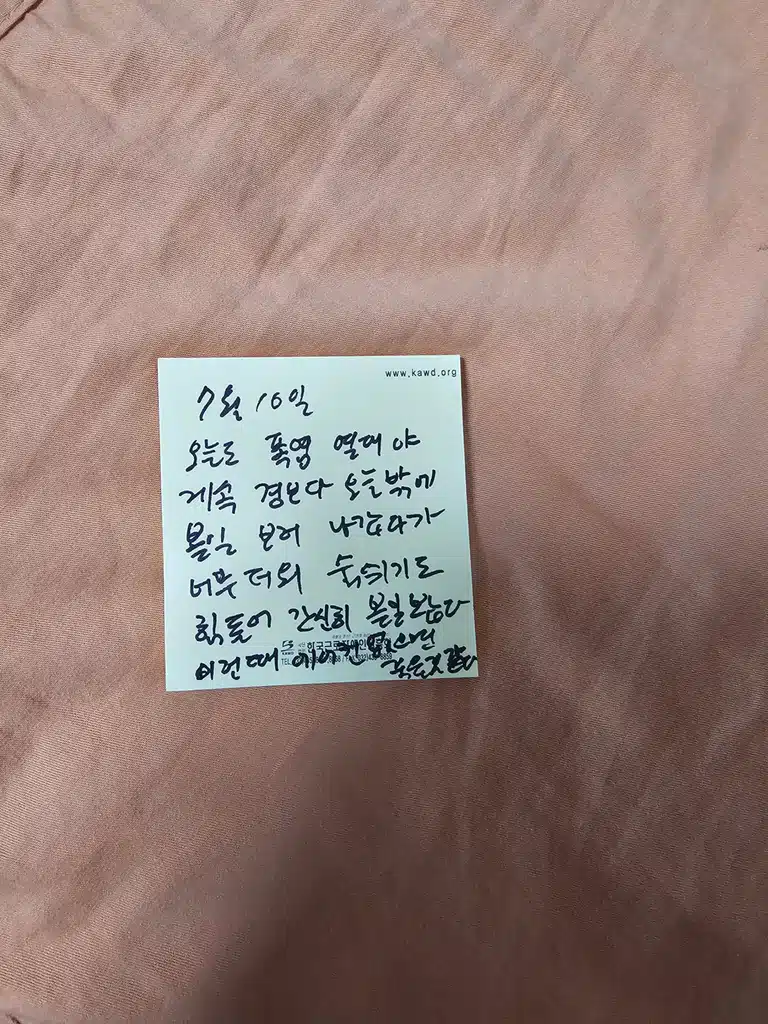 www.kawd.org
7월 10일
오늘도 폭염 열대야
계속 경보다 오늘밖에
볼일 보러 나갔다가
너무더워 숨쉬기도
힘들어 간신히 볼일보았다
이런때 에어컨 없으면
죽을것 같다
KAWD
TEL